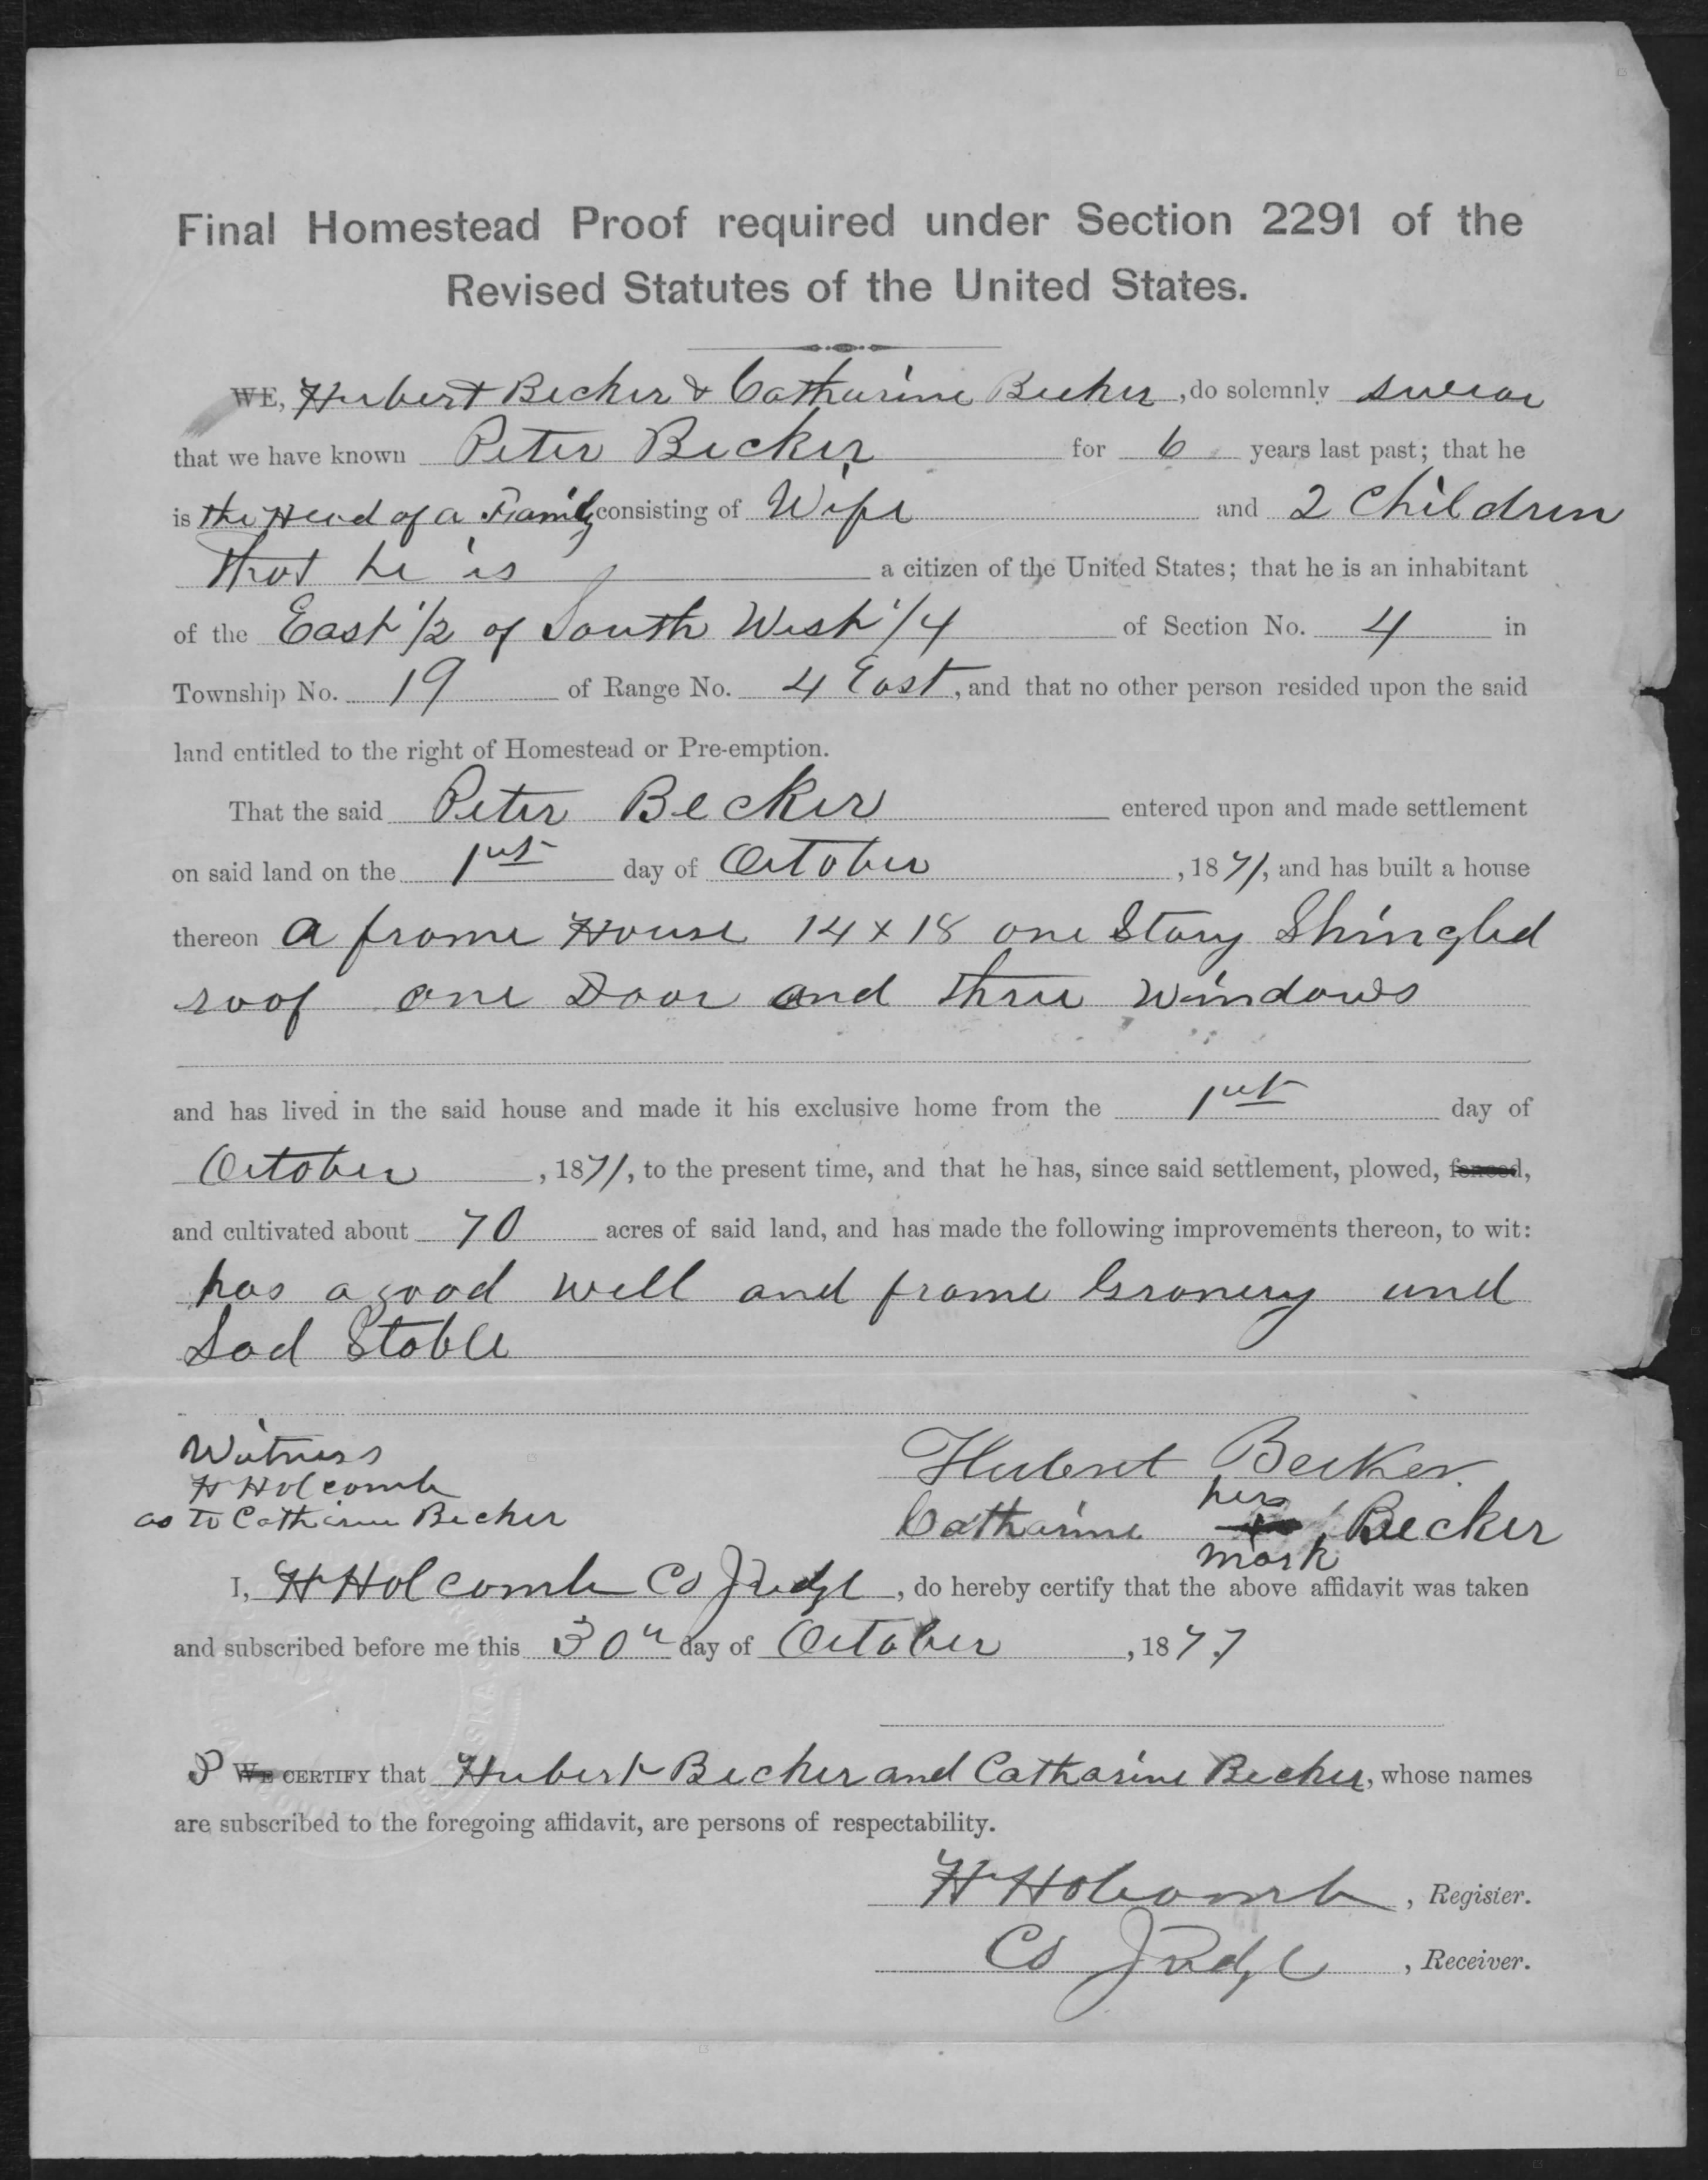 Final Homestead Proof required under Section 2291 of the
Revised Statutes of the United States.
WE, Hubert Becker & Catharine Becker, do solemnly swear
that we have known Peter Becker for 6 years last past; that he
is the Head of a Family consisting of Wife and 2 Children
That he is a citizen of the United States; that he is an inhabitant
of the East 1/2 of South West 1/4 of Section No. 4 in
Township No. 19 of Range No. 4 East, and that no other person resided upon the said
land entitled to the right of Homestead or Pre-emption.
That the said Peter Becker entered upon and made settlement
on said land on the 1st day of October, 1871, and has built a house
thereon a frame House 14 x 18 one Story Shingled
roof one Door and three windows
and has lived in the said house and made it his exclusive home from the 1st day of
October, 1871, to the present time, and that he has, since said settlement, plowed, fenced,
and cultivated about 70 acres of said land, and has made the following improvements thereon, to wit:
has a good well and frame Granery and
Sod Stable
Witness
H Holcomb
as to Catharine Becker
Hubert Becker
her
Catharine + Becker
mark
I, H Holcomb Co Judge, do hereby certify that the above affidavit was taken
and subscribed before me this 30th day of October, 1877
I WE CERTIFY that Hubert Becker and Catharine Becker, whose names
are subscribed to the foregoing affidavit, are persons of respectability.
H Holcomb, Register.
Co Judge, Receiver.